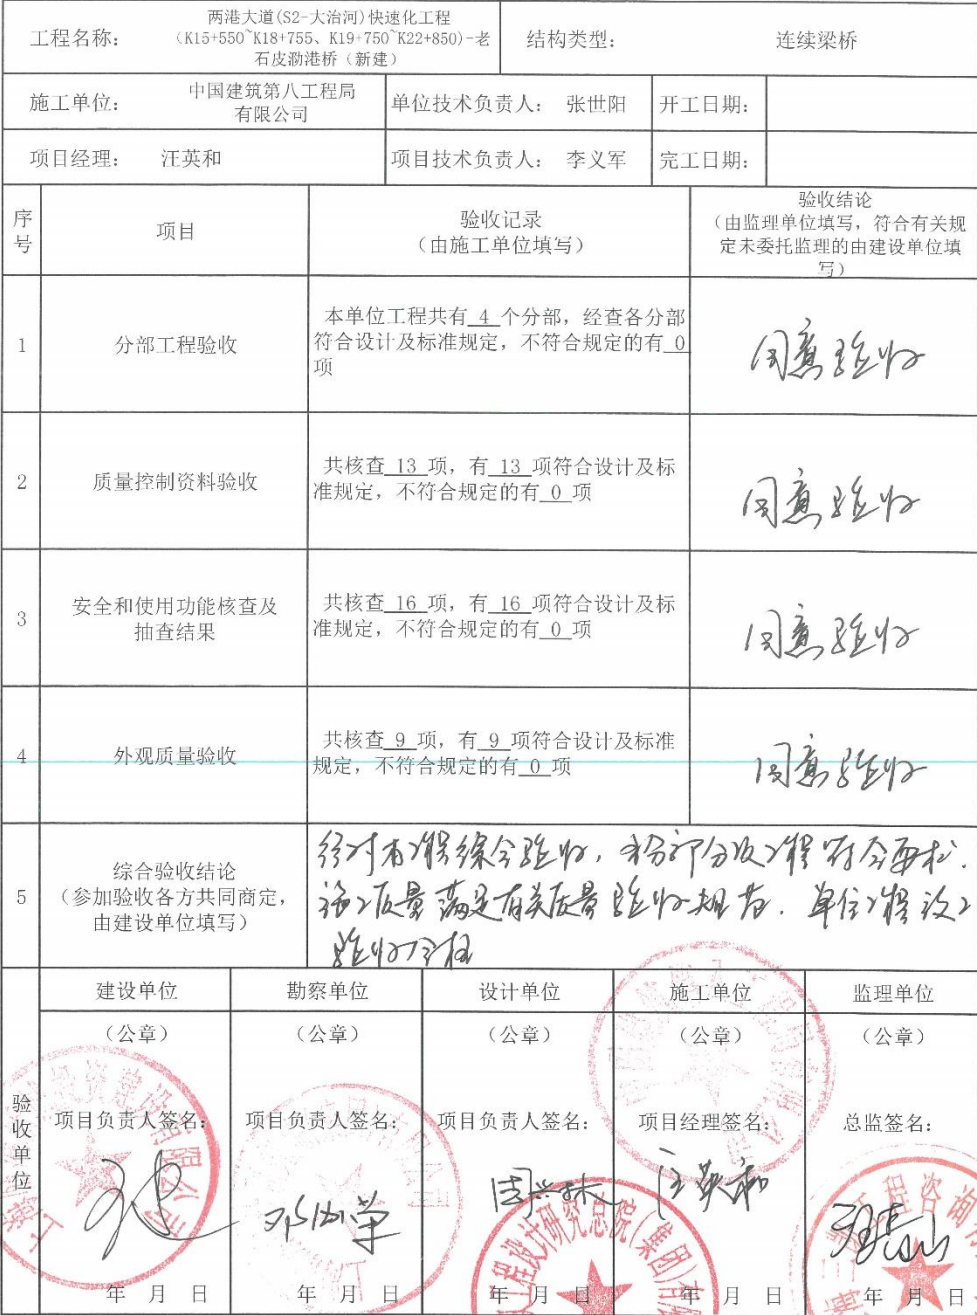 工程名称：
两港大道(S2-大治河)快速化工程
（K15+550~K18+755、K19+750~K22+850)-老
石皮泐港桥（新建）
结构类型：
连续梁桥
施工单位：
中国建筑第八工程局
有限公司
单位技术负责人： 张世阳
开工日期：
项目经理： 汪英和
项目技术负责人： 李义军
完工日期：
序
号
项目
验收记录
（由施工单位填写）
验收结论
（由监理单位填写，符合有关规
定未委托监理的由建设单位填
写）
1
分部工程验收
本单位工程共有 4 个分部，经查各分部
符合设计及标准规定，不符合规定的有 0
项
同意验收
2
质量控制资料验收
共核查 13 项，有 13 项符合设计及标
准规定，不符合规定的有 0 项
同意验收
3
安全和使用功能核查及
抽查结果
共核查 16 项，有 16 项符合设计及标
准规定，不符合规定的有 0 项
同意验收
4
外观质量验收
共核查 9 项，有 9 项符合设计及标准
规定，不符合规定的有 0 项
同意验收
5
综合验收结论
（参加验收各方共同商定，
由建设单位填写）
经对本工程综合验收，各分部分项工程符合要求.
施工质量满足有关质量验收规范. 单位工程
验收合格
验
收
单
位
建设单位
（公章）
项目负责人签名：
年 月 日
勘察单位
（公章）
项目负责人签名：
年 月 日
设计单位
（公章）
项目负责人签名：
周兴林
工程设计研究总院(集团)有限
年 月 日
施工单位
（公章）
项目经理签名：
汪英和
年 月 日
监理单位
（公章）
总监签名：
工程咨询
年 月 日